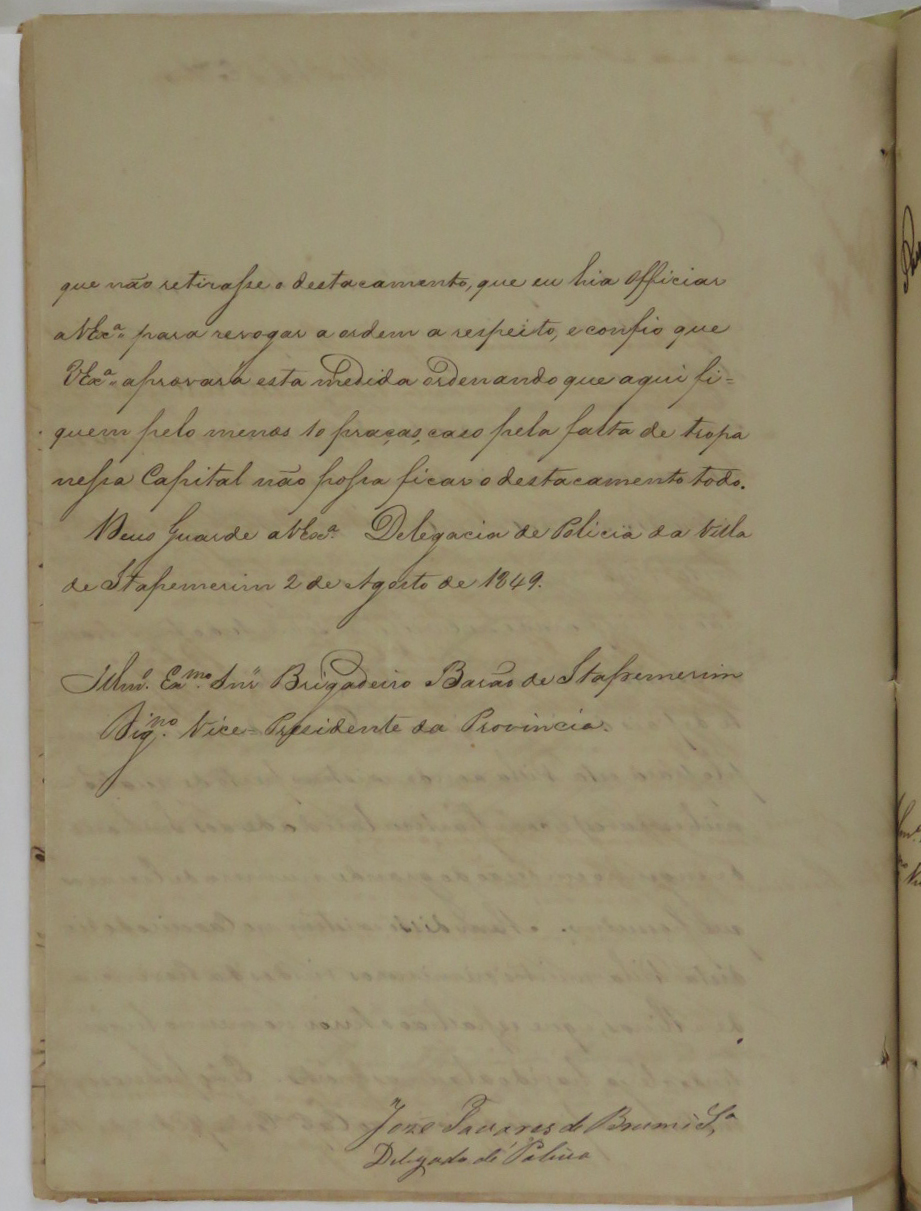 que não retirasse o destacamento, que eu hia Officiar
a VExcª. para revogar a ordem a respeito, e confio que
VExª. aprovará esta medida ordenando que aqui fi=
quem pelo menos 10 praças, caso pela falta de tropa
nessa Capital não possa ficar o destacamento todo.
Deus Guarde a VExcª. Delegacia de Policia da Villa
de Itapemerim 2 de Agosto de 1849.
Illmº. Exmº. Snr Brigadeiro Barão de Itapemerim
Digno. Vice-Presidente da Provincia.
Joze Tavares de Brum e Sª
Delegado de Policia